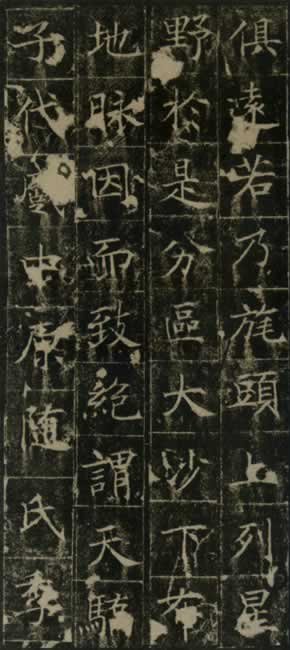 俱遠若乃旄頭上列星
野於是分區大沙下布
地脉因而致絕謂天驕
子代虐中原随氏季